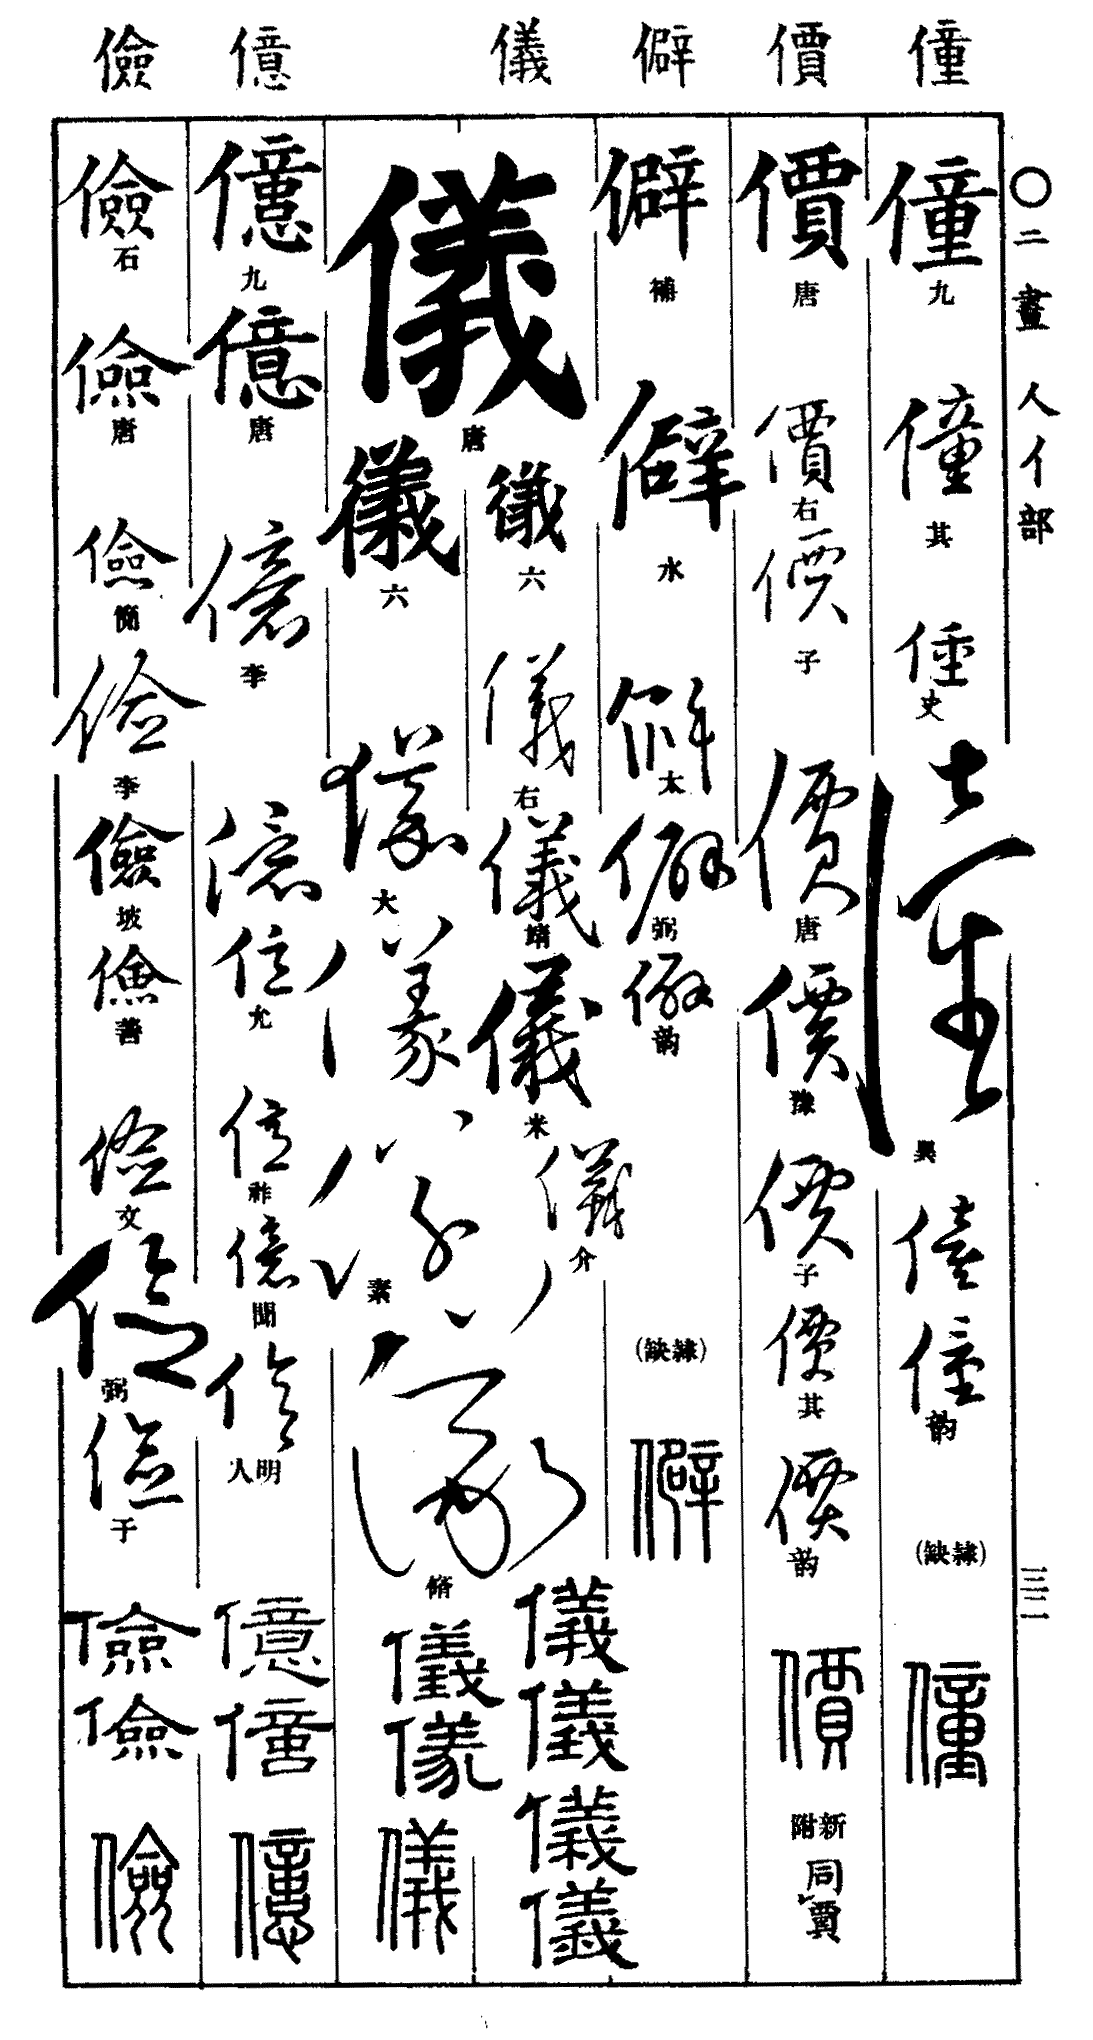 僮 價 僻 儀 億 儉
〇二畫 人亻部
三二
僮 九
僮 其
僮 史
僮 異
僮
僮 韵
(缺隸)
僮
價 唐
價 右
價 子
價 唐
價 豫
價 子
價 其
價 韵
價
附新
同賈
僻 補
僻 水
僻 太
僻 弼
僻 韵
(缺隸)
僻
儀 唐
儀 六
儀 右
儀 靖
儀 米
儀 介
儀
儀
儀
儀
儀 六
儀 大
儀
儀 素
儀 脩
儀
儀
儀
億 九
億 唐
億 李
億
億 允
億 祚
億 聞
億 人明
億
億
億
儉 石
儉 唐
儉 簡
儉 李
儉 坡
儉 善
儉 文
儉 弼
儉 于
儉
儉
儉